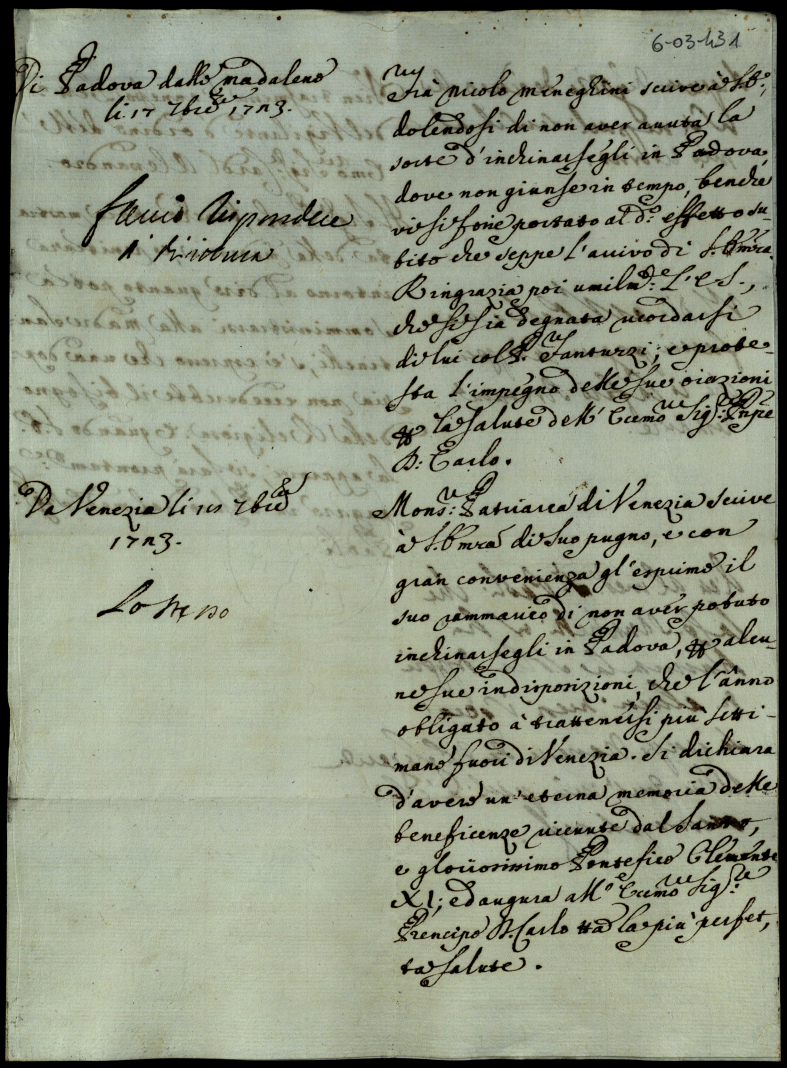 6-03-431
Di Padova dalle Madalene
li 17 7bre 1723.
faccio rispondere
Frà Nicolo Meneghini scrive à S. Em.ᵃ,
dolendosi di non aver avuta la
sorte d'inchinarsegli in Padova,
dove non giunse in tempo, benche
vi si fosse portato al d.º effetto su-
bito che seppe l'arrivo di S. Emza.
Ringrazia poi umilm.ᵉ l'E. S.,
che si sia degnata ricordarsi
di lui col P. Fantuzzi; e prote-
sta l'impegno delle sue orazioni
la salute dell' Eccmo Sig.ʳ Pnpe
D. Carlo.
Da Venezia li 7bre
1723.
Lo stesso
Mons.ʳ Patriarca di Venezia scrive
à S. Emza di suo pugno, e con
gran convenienza gl'esprime il
suo rammarico di non aver potuto
inchinarsegli in Padova, ꝑ alcu-
ne sue indisposizioni, che l'ànno
obligato à trattenersi più setti-
mane fuori di Venezia. Si dichiara
d'avere un'eterna memoria delle
beneficenze ricevute dal Santo,
e gloriosissimo Pontefice Clemente
XI; ed augura all' Eccmo Sig.ʳᵉ
Prencipe D. Carlo tta la più perfet,
ta salute.